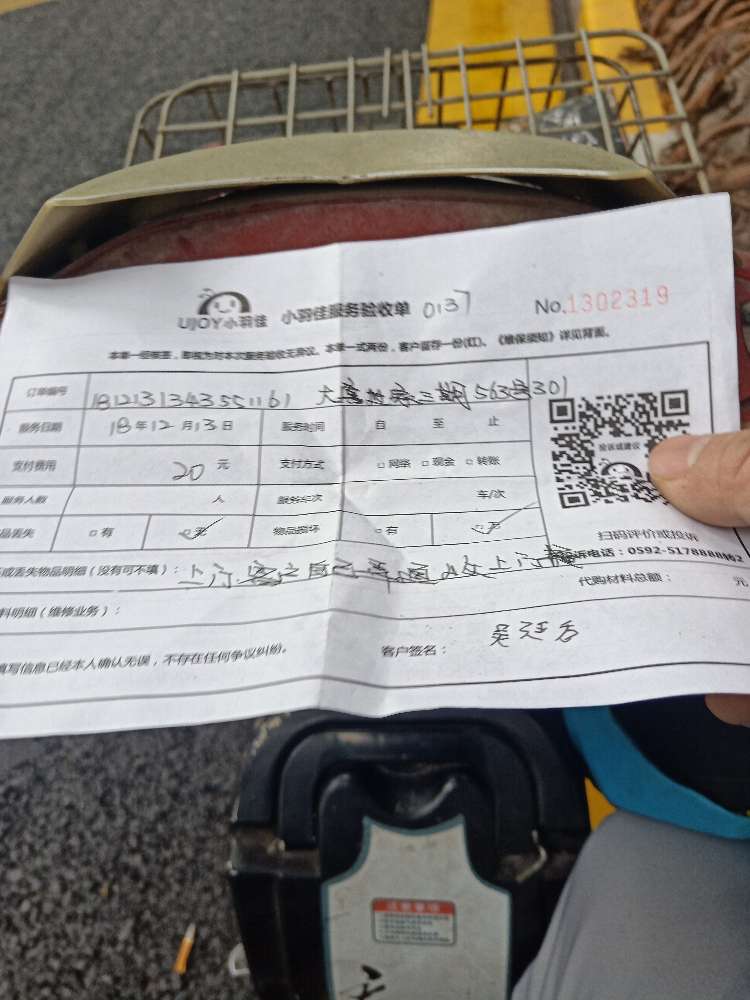 UJOY小羽佳 小羽佳服务验收单 0137 No.1302319
本单一经签署，即视为对本次服务验收无异议。本单一式两份，客户留存一份(红)。《维保须知》详见背面。
订单编号 1812131343551161 三期563号301
服务日期 18年12月13日 服务时间 自 至 止
支付费用 20元 支付方式 □网络 □现金 □转账
服务人数 人 服务车次 车/次
品丢失 □有 无 物品损坏 □有 无
投诉或建议
扫码评价或投诉
诉电话：0592-5178888
或丢失物品明细（没有可不填）： 上门.客户自己弄通 收上门
代购材料总额： 元
料明细（维修业务）：
填写信息已经本人确认无误，不存在任何争议纠纷。 客户签名： 吴廷
注意事项